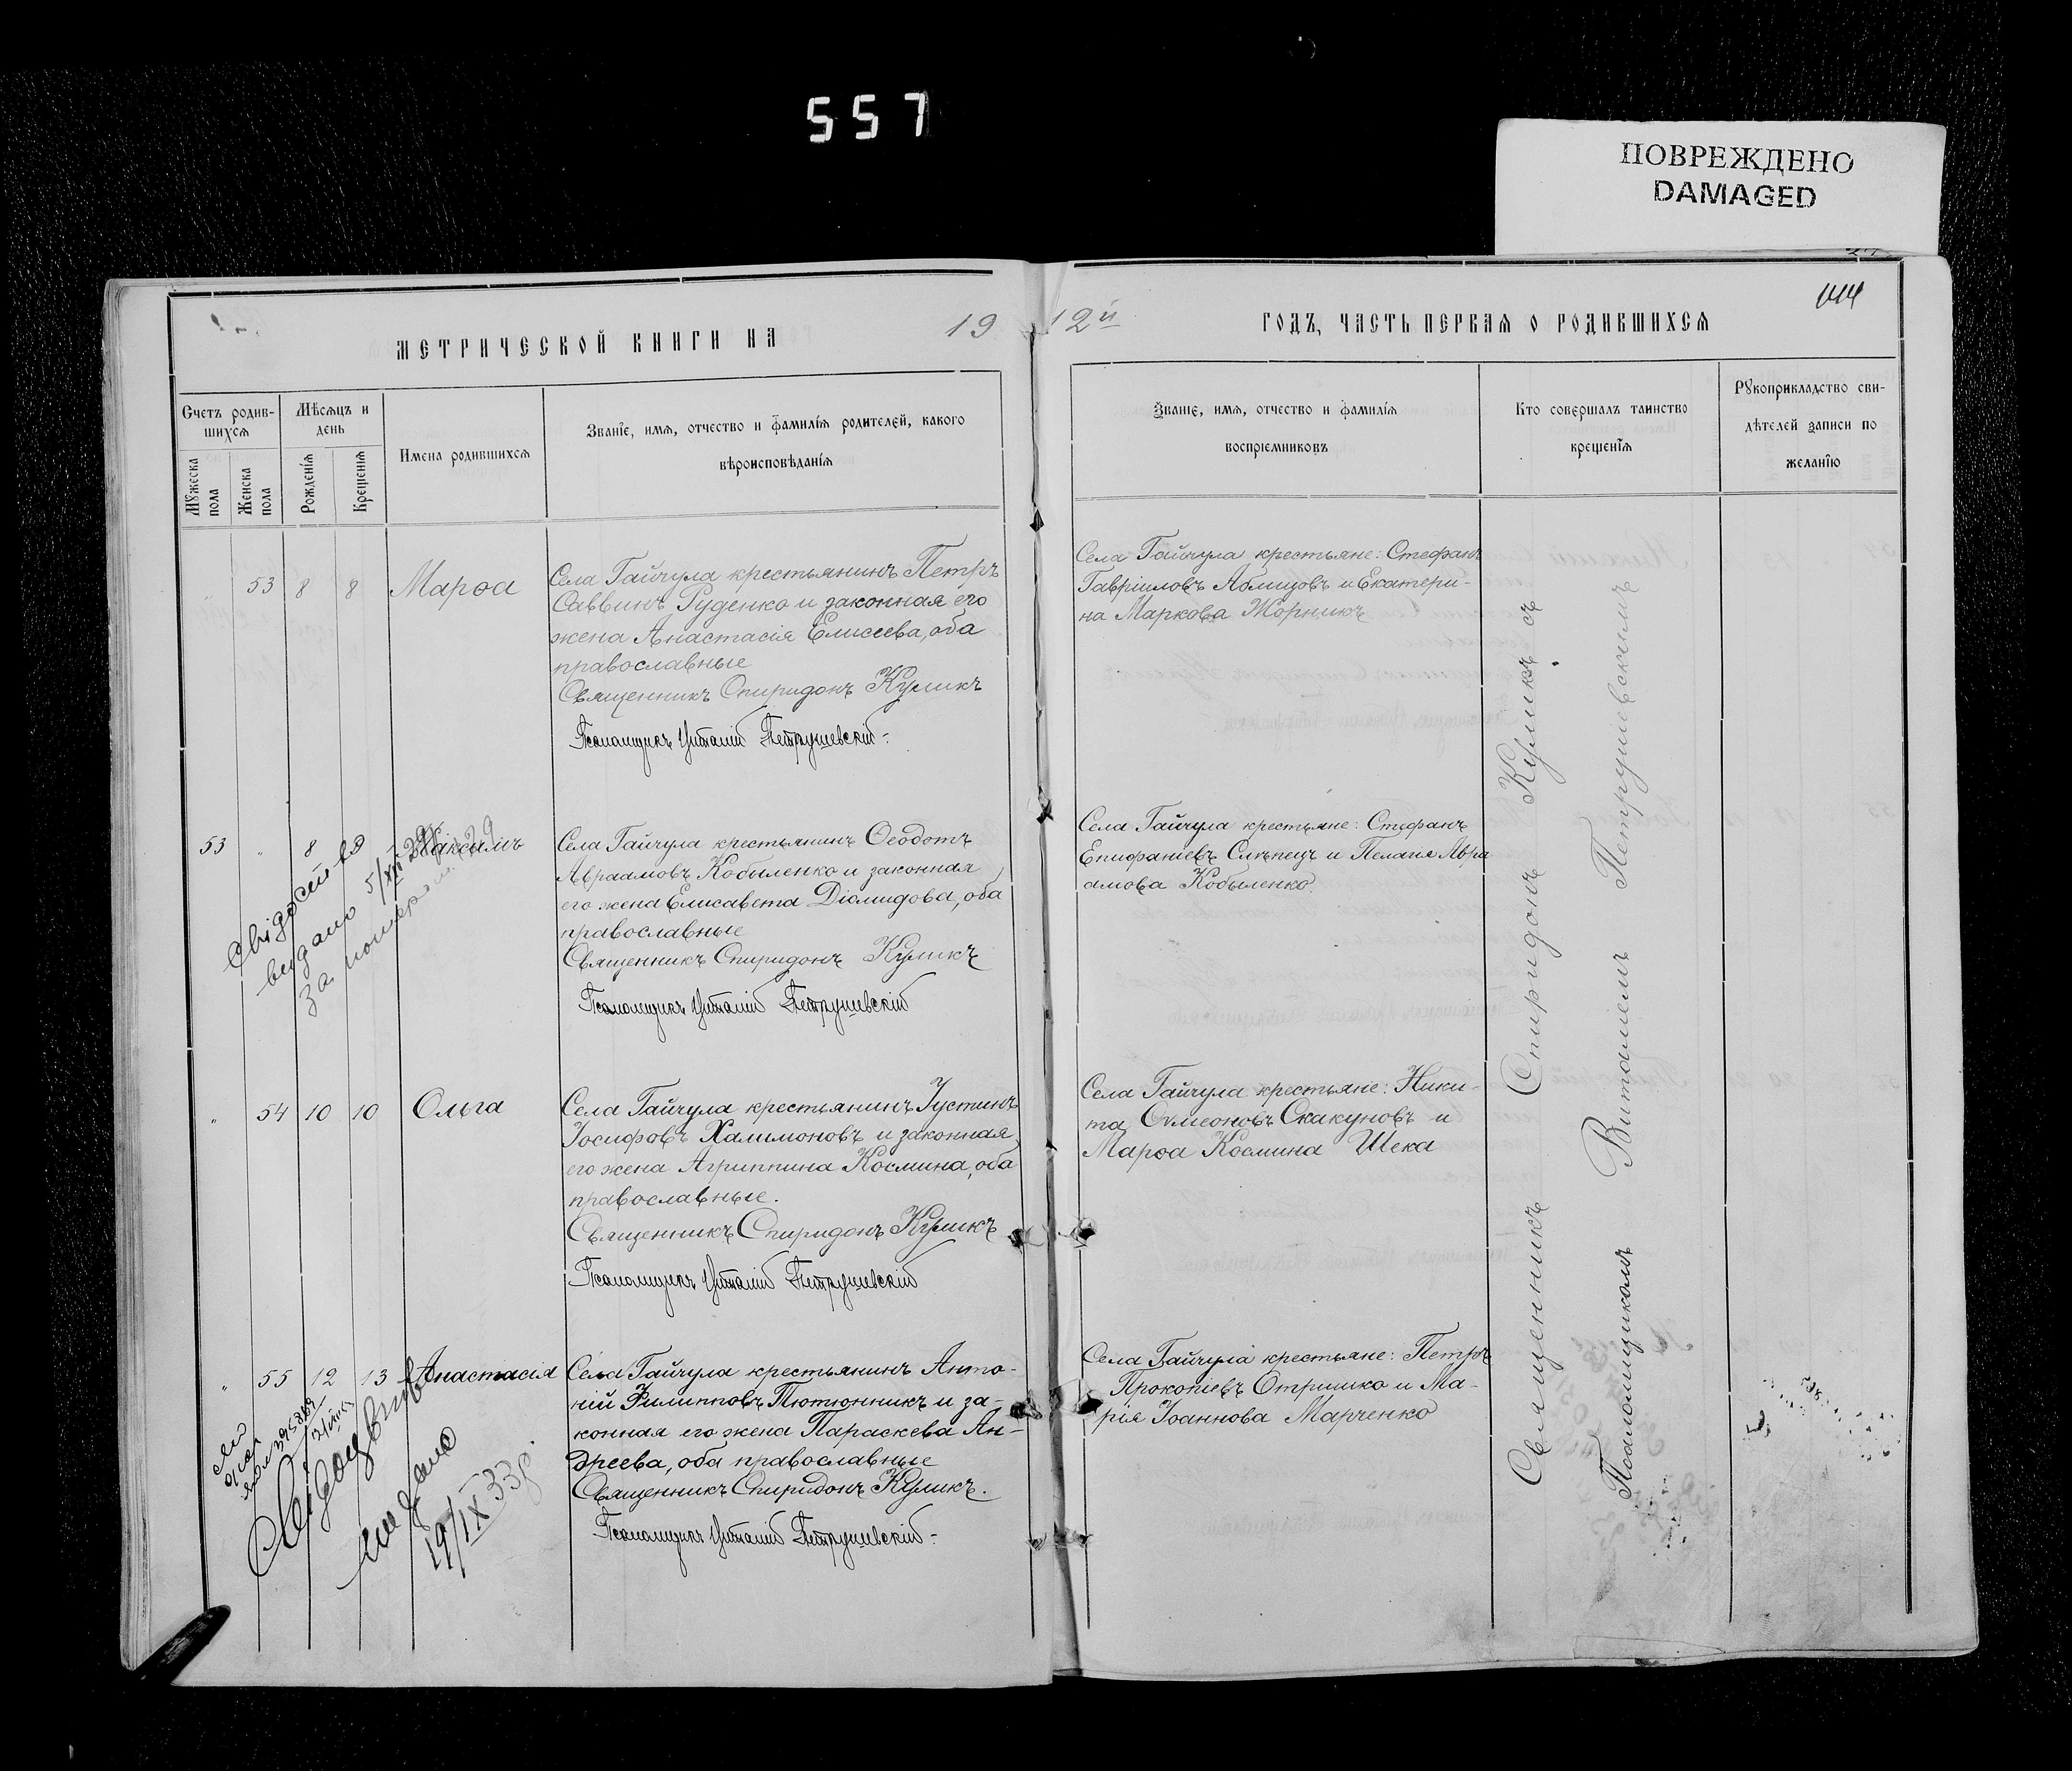 557
ПОВРЕЖДЕНО
DAMAGED
МЕТРИЧЕСКОЙ КНИГИ НА 19
Счетъ родив-
шихся
Мѣсяцъ и
день
Имена родившихся
Званіе, имя, отчество и фамилія родителей, какого
вѣроисповѣданія
Мужеска
пола
Женска
пола
Рожденія
Крещенія
53 8 8 Марѳа
Села Гайчула крестьянинъ Петръ
Саввинъ Руденко и законная его
жена Анастасія Елисеева, оба
православные
Священникъ Спиридонъ Куликъ
Псаломщикъ Виталій Петрушевскій
53 " 8 Максимъ
Села Гайчула крестьянинъ Ѳеодотъ
Авраамовъ Кобыленко и законная
его жена Елисавета Діомидова, оба
православные
Священникъ Спиридонъ Куликъ
Псаломщикъ Виталій Петрушевскій
видано 5/XII
за номером
" 54 10 10 Ольга
Села Гайчула крестьянинъ Іустинъ
Іосифовъ Халимоновъ и законная
его жена Агриппина Космина, оба
православные.
Священникъ Спиридонъ Куликъ
Псаломщикъ Виталій Петрушевскій
" 55 12 13 Анастасія
Села Гайчула крестьянинъ Анто-
ній Филипповъ Тютюнникъ и за-
конная его жена Параскева Ан-
дреева, оба православные
Священникъ Спиридонъ Куликъ.
Псаломщикъ Виталій Петрушевскій
19/IX 33р.
12й ГОДЪ, ЧАСТЬ ПЕРВАЯ О РОДИВШИХСЯ
Званіе, имя, отчество и фамилія
воспріемниковъ
Кто совершалъ таинство
крещенія
Рукоприкладство сви-
дѣтелей записи по
желанію
Села Гайчула крестьяне: Стефанъ
Гавріиловъ Аблицовъ и Екатери-
на Маркова Жорникъ
Села Гайчула крестьяне: Стефанъ
Епифаніевъ Слѣпецъ и Пелагія Авра
амова Кобыленко.
Села Гайчула крестьяне: Ники-
та Сѵмеоновъ Скакуновъ и
Марѳа Космина Шека
Села Гайчула крестьяне: Петръ
Прокопіевъ Отришко и Ма-
рія Іоаннова Марченко
Священникъ Спиридонъ Куликъ съ
Псаломщикомъ Виталіемъ Петрушевскимъ